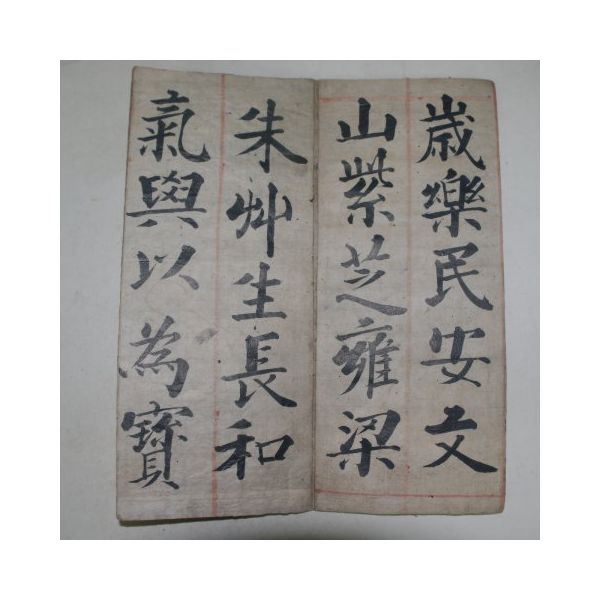 歲樂民安文
山紫芝雍梁
朱艸生長和
氣與以為寶